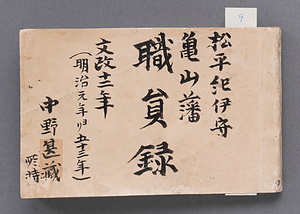 9
松平紀伊守
亀山藩
職員録
文政十二年
(明治元年ヨリ五十三年)
中野甚藏
所持